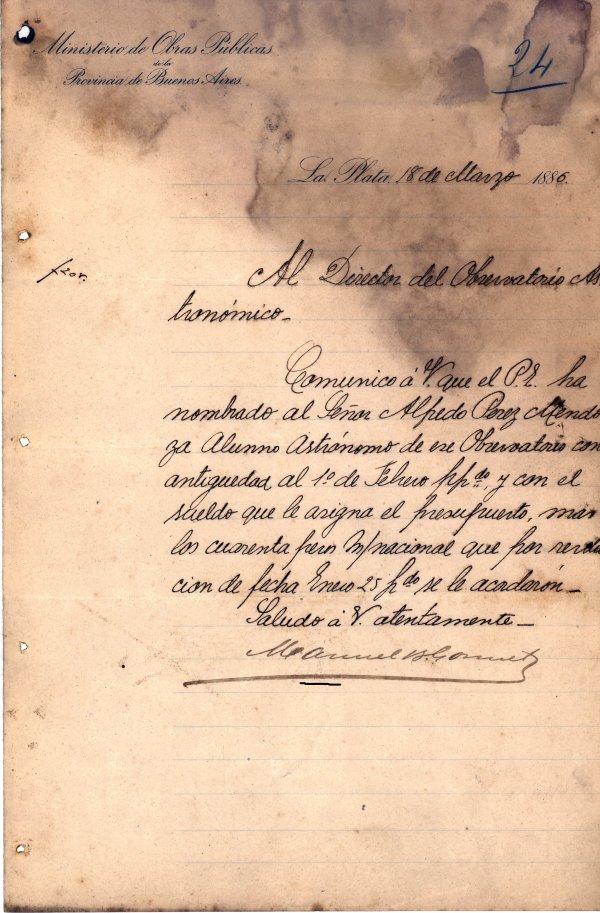 Ministerio de Obras Públicas
de la
Provincia de Buenos Aires
24
La Plata, 18 de Marzo 1886.
Al Director del Observatorio As
tronómico_
Comunico á V. que el P.E. ha
nombrado al Señor Alfredo Perez Mendo
za Alumno Astrónomo de ese Observatorio con
antiguedad al 1º de Febrero ppdo, y con el
sueldo que le asigna el presupuesto, mas
los cuarenta pesos m/nacional que por resolu
cion de fecha Enero 25 pdo se le acordarón_
Saludo á V. atentamente_
Manuel B. Gonnet